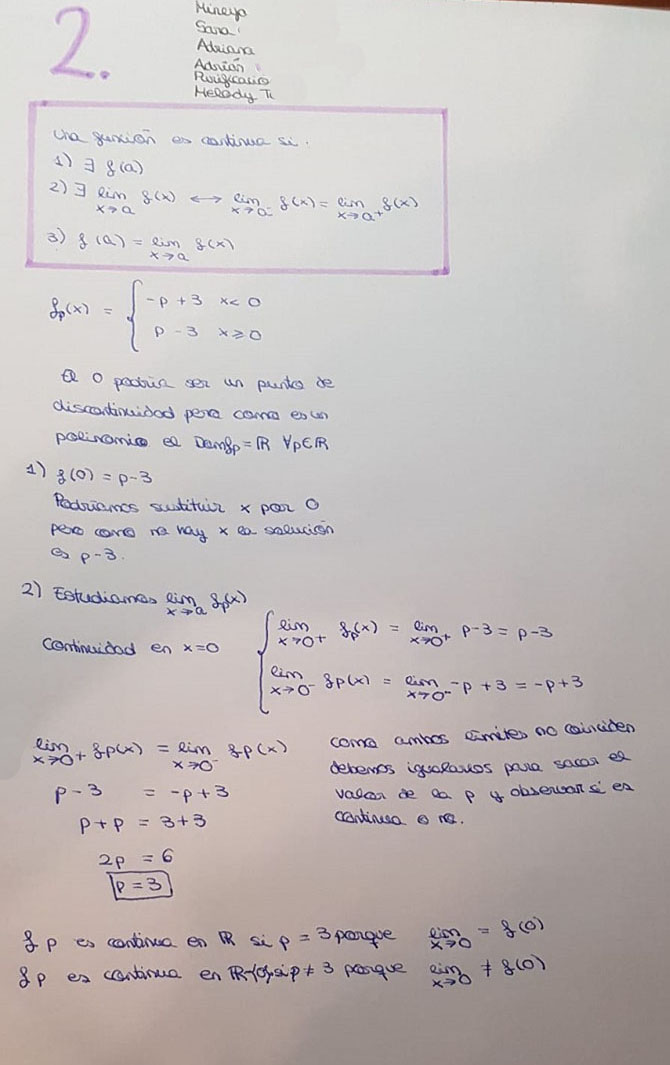 2.
Mireya
Sara
Adriana
Adrián
Purificació
Melody Ti
Una función es continua si:
1) ∃ f(a)
2) ∃ lim x→a f(x) ⟷ lim x→a⁻ f(x) = lim x→a⁺ f(x)
3) f(a) = lim x→a f(x)
fp(x) = { -p + 3 x < 0
p - 3 x ≥ 0
El 0 podría ser un punto de
discontinuidad pero como es un
polinomio el Domfp = ℝ ∀p∈ℝ
1) f(0) = p-3
Podríamos sustituir x por 0
pero como no hay x la solución
es p-3.
2) Estudiamos lim x→a fp(x)
Continuidad en x=0
{ lim x→0⁺ fp(x) = lim x→0⁺ p-3 = p-3
lim x→0⁻ fp(x) = lim x→0⁻ -p + 3 = -p+3
lim x→0⁺ fp(x) = lim x→0⁻ fp(x)
p-3 = -p+3
p+p = 3+3
2p = 6
p = 3
Como ambos límites no coinciden
debemos igualarlos para sacar el
valor de la p y observar si es
continua o no.
fp es continua en ℝ si p = 3 porque lim x→0 = f(0)
fp es continua en ℝ-{0} si p ≠ 3 porque lim x→0 ≠ f(0)